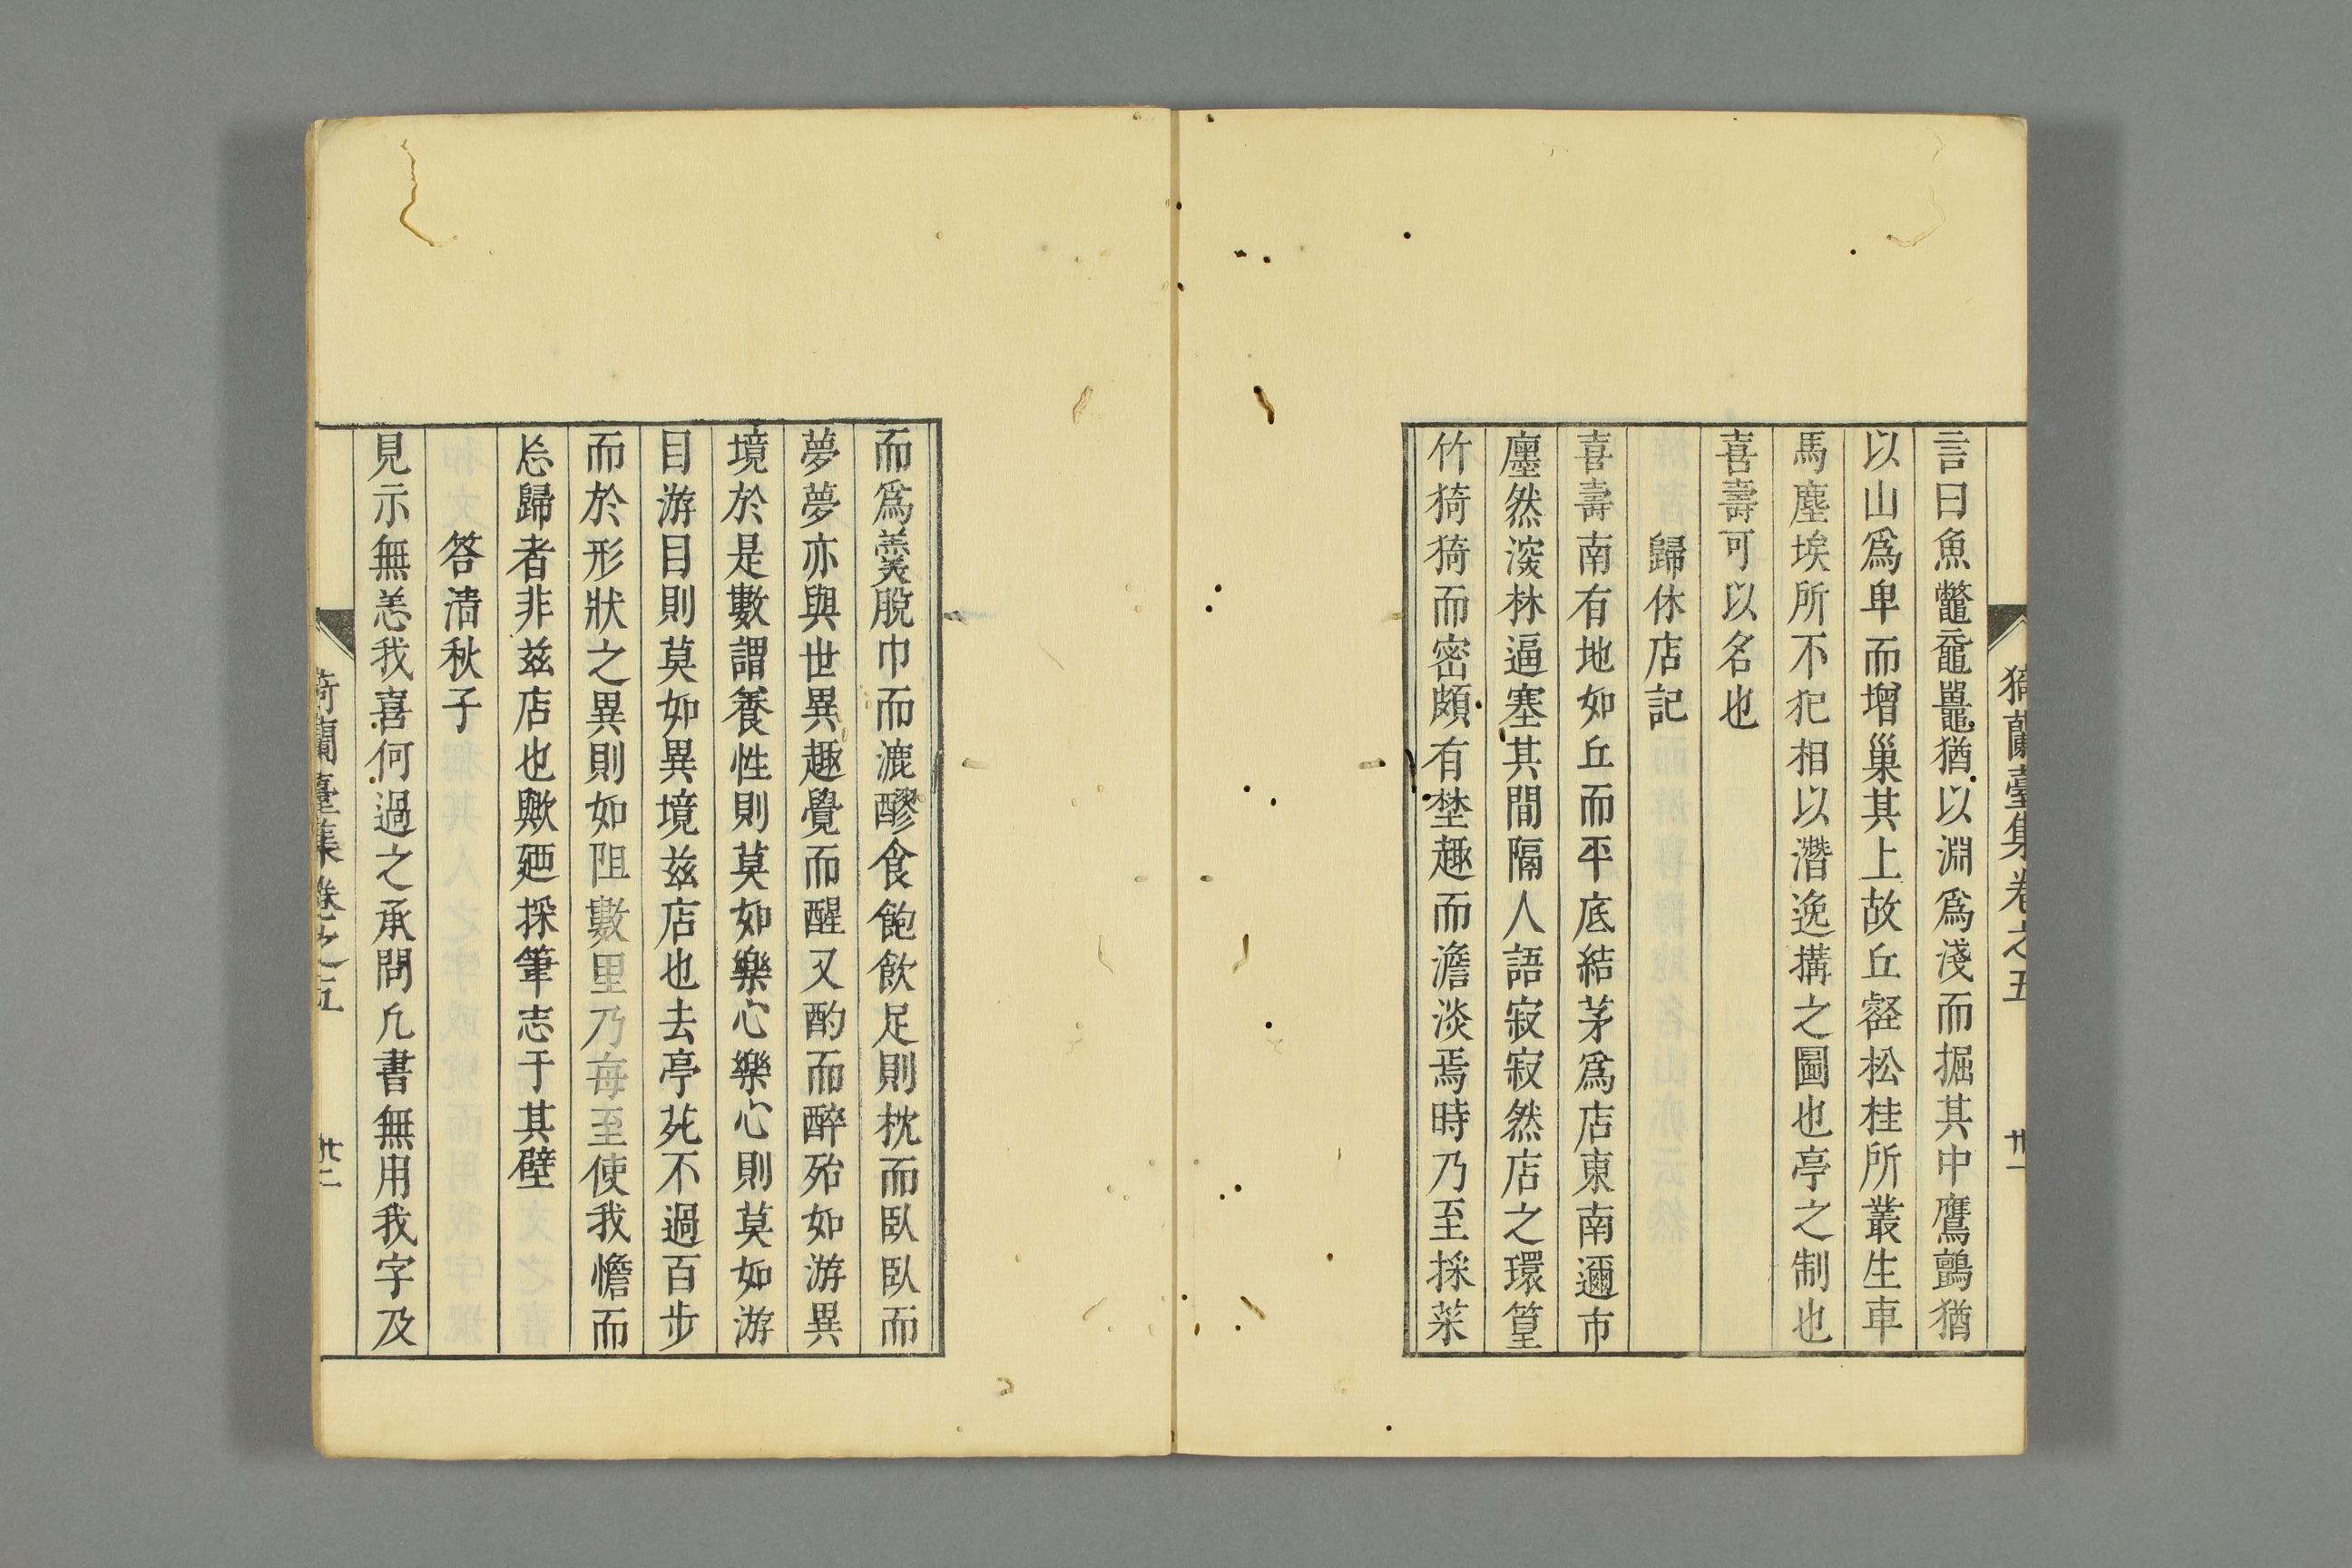 猗蘭臺集卷之五 卅一
言曰魚鼈黿鼉猶以淵爲淺而掘其中鷹鸇猶
以山爲卑而增巢其上故丘壑松桂所叢生車
馬塵埃所不犯相以潛逸搆之圖也亭之制也
喜壽可以名也
歸休店記
喜壽南有地如丘而平底結茅爲店東南邇市
廛然深林逼塞其間隔人語寂寂然店之環篁
竹猗猗而密頗有埜趣而澹淡焉時乃至採菜
而爲羹脫巾而漉醪食飽飲足則枕而臥臥而
夢夢亦與世異趣覺而醒又酌而醉殆如游異
境於是數謂養性則莫如樂心樂心則莫如游
目游目則莫如異境茲店也去亭苑不過百步
而於形狀之異則如阻數里乃每至使我憺而
忘歸者非茲店也歟廼採筆志于其壁
答淸秋子
見示無恙我喜何過之承問凡書無用我字及
猗蘭臺集卷之五 卅二